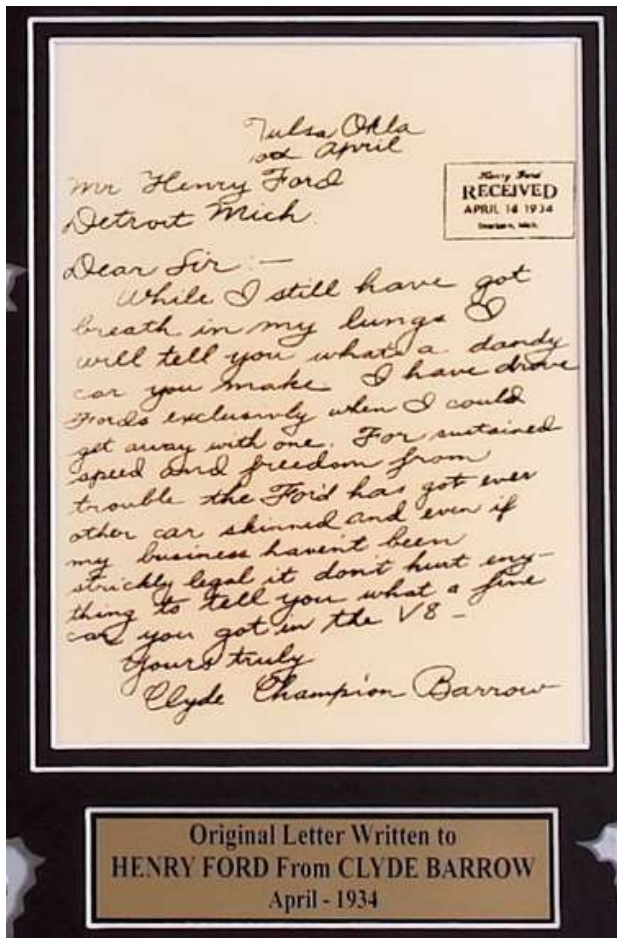 Tulsa Okla
10th April
Mr Henry Ford
Detroit Mich.
Henry Ford
RECEIVED
APRIL 14 1934
Dearborn, Mich.
Dear Sir:—
While I still have got
breath in my lungs I
will tell you what a dandy
car you make. I have drove
Fords exclusivly when I could
get away with one. For sustained
speed and freedom from
trouble the Ford has got ever
other car skinned and even if
my business haven't been
strickly legal it don't hurt eny-
thing to tell you what a fine
car you got in the V8 –
Yours truly
Clyde Champion Barrow
Original Letter Written to
HENRY FORD From CLYDE BARROW
April - 1934